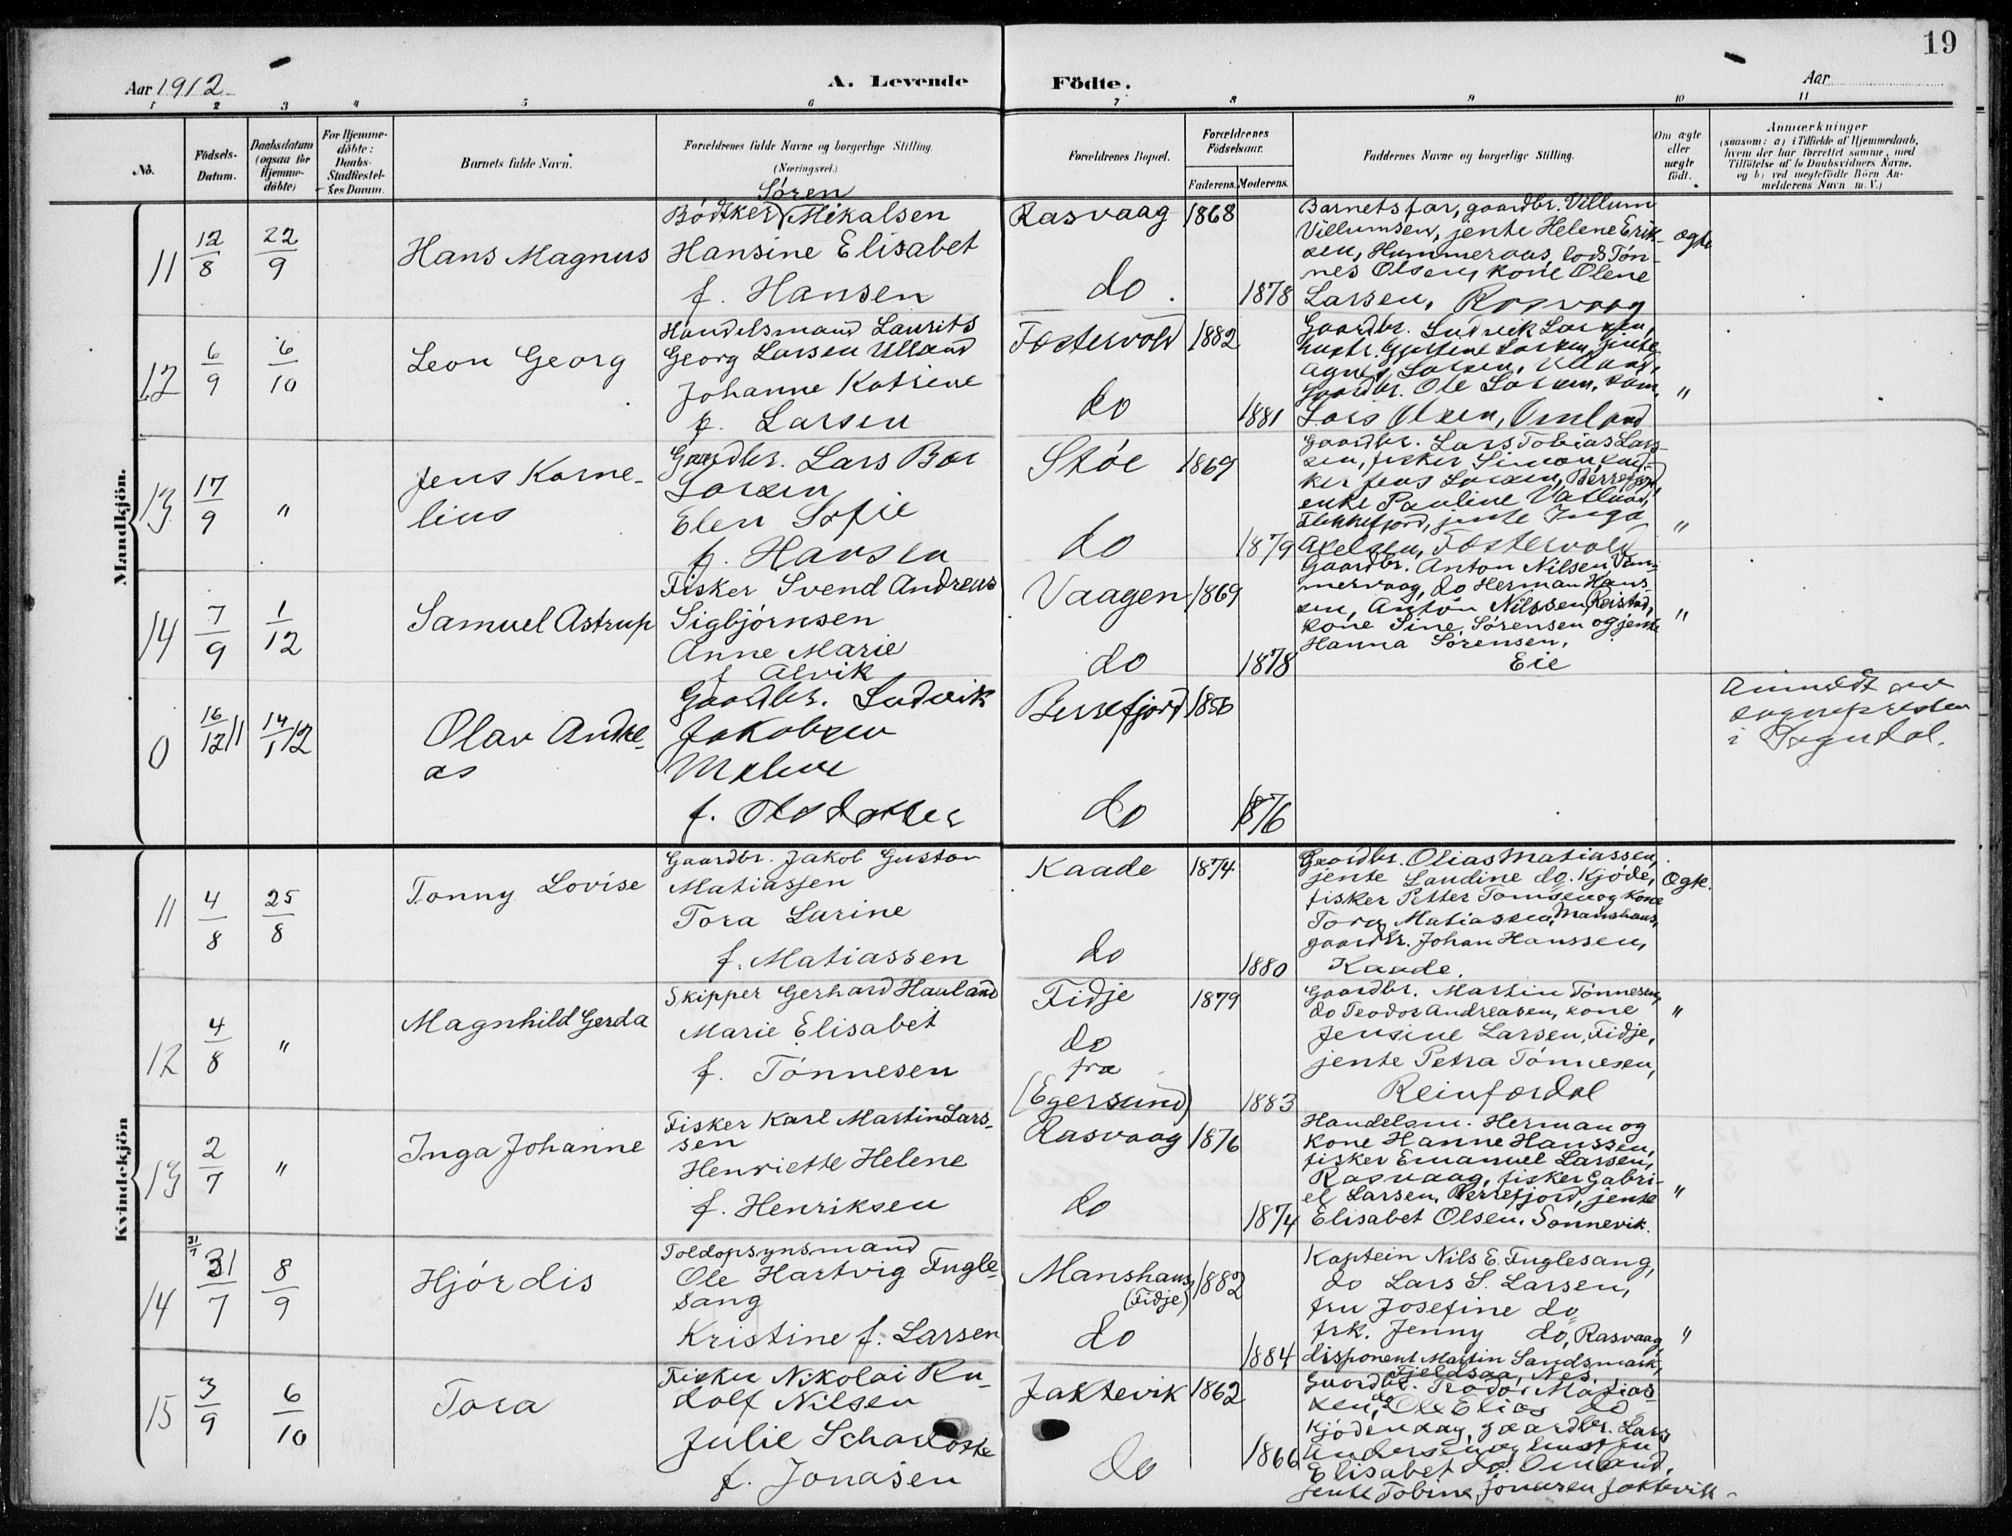 19
Aar 1912
A. Levende Födte.
Aar
1 2 3 4 5 6 7 8 9 10 11
No.
Födsels-Datum.
Daabsdatum (ogsaa for Hjemme-döbte)
For Hjemme-döbte: Daabs-Stadfæstel-ses Datum.
Barnets fulde Navn.
Forældrenes fulde Navne og borgerlige Stilling.
(Næringsvei.)
Forældrenes Bopæl.
Forældrenes Födselsaar.
Faderens. Moderens.
Faddernes Navne og borgerlige Stilling.
Om ægte eller uægte födt.
Anmærkninger
(saasom: a) i Tilfælde af Hjemmedaab,
hvem der har forrettet samme, med
Tilföielse af to Daabsvidners Navne,
og b) ved uægtefödte Börn An-
melderens Navn m. V.)
Mandkjön.
11 12/8 22/9 Hans Magnus
Søren
Bødtker Mikalsen
Hansine Elisabet
f. Hansen
Rasvaag 1868
do. 1878
Barnets far, gaardbr. Villum
Villumsen, jente Helene Erik-
sen, Hummeraas, lods Tøn-
nes Olsen, kone Olene
Larsen, Rasvaag
ægte
12 6/9 6/10 Leon Georg
Handelsmand Laurits
Georg Larsen Ulland
Johanne Katrine
f. Larsen
Fostervold 1882
do 1881
Gaardbr. Ludvik Larsen,
hustr. Gjertine Larsen, jente
Agnes Larsen, Ulland,
gaardbr. Ole Larsen,
Lars Olsen, Omland
"
13 17/9 " Jens Korne-
lius
Gaardbr. Lars Boe
Larsen
Elen Sofie
f. Hansen
Støe 1869
do 1879
Gaardbr. Lars Tobias Lars-
sen, fisker Simon,
Jens Larsen, Berrefjord,
enke Pauline Vatland,
Flekkefjord, jente Inga
Axelsen, Fostervold
"
14 7/9 1/12 Samuel Astrup
Fisker Svend Andreas
Sigbjørnsen
Anne Marie
f. Alvik
Vaagen 1869
do 1878
Gaardbr. Anton Nilsen Vem-
mervaag, do Herman Hans-
sen, Anton Nilssen, Reistad,
kone Sine Sørensen og jente
Hanna Sørensen,
Eie
"
0 16/12 11 14/1 12 Olav Andre-
as
Gaardbr. Ludvik
Jakobsen
Malene
f. Olsdatter
Berrefjord 1856
do 1876
Anmeldt av
sognepresten
i Sogndal.
Kvindekjön
11 4/8 25/8 Tonny Lovise
Gaardbr. Jakob Gustav
Matiassen
Tora Lurine
f. Matiassen
Kaade 1874
do 1880
Gaardbr. Olias Matiassen,
jente Laudine do. Kjøde,
fisker Petter Tomsen og kone
Tora Matiassen, Manshaus,
gaardbr. Johan Hanssen,
Kaade.
Ægte.
12 4/8 " Magnhild Gerda
Skipper Gerhard Hauland
Marie Elisabet
f. Tønnesen
Fidje 1879
do
fra
(Egersund) 1883
Gaardbr. Martin Tønnesen,
do Teodos Andreasen, kone
Jensine Larsen, Fidje,
jente Petra Tønnesen,
Reinfordal
"
13 2/7 " Inga Johanne
Fisker Karl Martin Lars-
sen
Henriette Helene
f. Henriksen
Rasvaag 1876
do 1874
Handelsm. Herman og
kone Hanne Hanssen,
fisker Emanuel Larsen,
Rasvaag, fisker Gabri-
el Larsen, Berrefjord, jente
Elisabet Olsen, Sonnevik.
"
31/7
14 31/7 8/9 Hjørdis
Toldopsynsmand
Ole Hartvig Fugle-
sang
Kristine f. Larsen
Manshaus 1882
(Fidje)
do 1884
Kaptein Nils E. Fuglesang,
do Lars S. Larsen,
fru Josefine do,
frk. Jenny do, Rasvaag,
disponent Martin Sandsmark,
Fjeldsaa, Nes.
"
15 3/9 6/10 Tora
Fisker Nikolai Ru-
dolf Nilsen
Julie Scharlotte
f. Jonasen
Jaktevik 1862
do 1866
Gaardbr. Teodor Matias-
sen, do Ole Elias do
Kjøde, gaardbr. Lars
Andersen og hustru
Elisabet do. Omland,
jente Tobine Jonasen Jaktevik